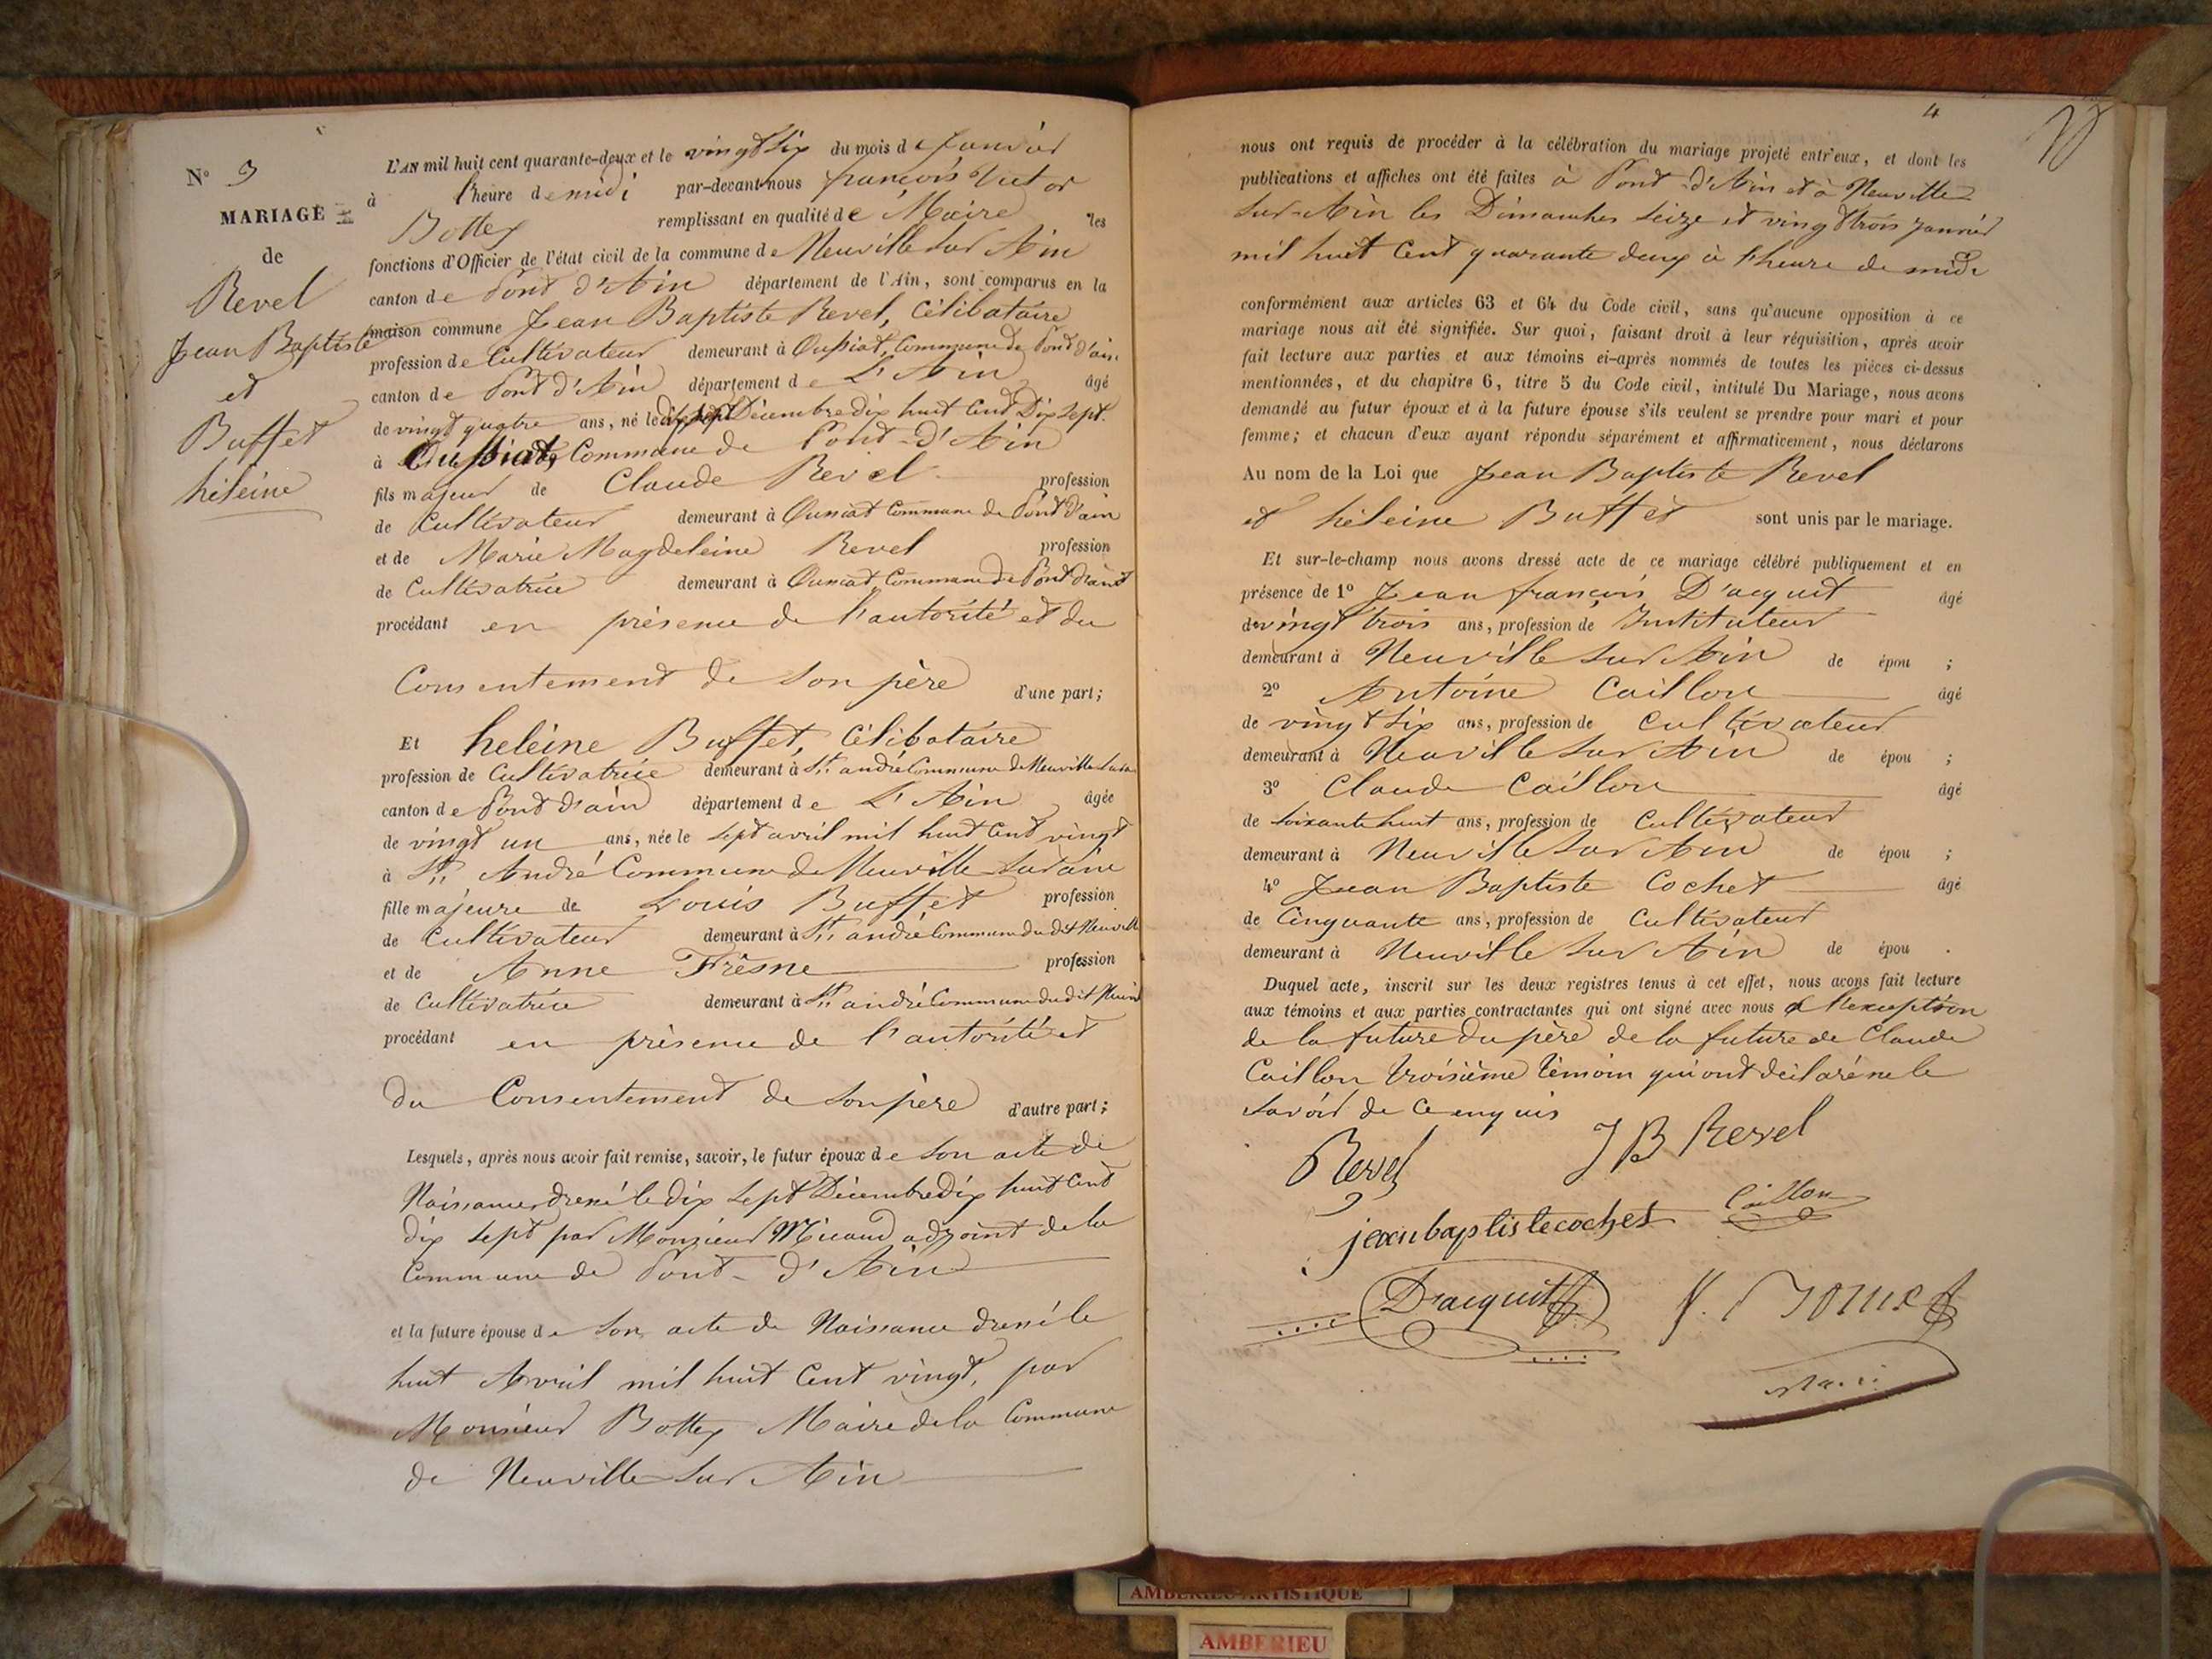 N° 3
MARIAGE
de
Revel
Jean Baptiste
et
Buffet
héleine
L'AN mil huit cent quarante-deux et le vingt six du mois de Janvier
à l'heure de midi par-devant nous françois Victor
Bottex remplissant en qualité de Maire les
fonctions d'Officier de l'état civil de la commune de Neuville sur Ain
canton de Pont d'Ain département de l'Ain, sont comparus en la
maison commune Jean Baptiste Revel, Célibataire
profession de Cultivateur demeurant à Oussiat, Commune de Pont d'ain
canton de Pont d'Ain département de L'Ain âgé
de vingt quatre ans, né le dix sept Décembre dix huit Cent Dix sept
à Oussiat, Commune de Pont-d'Ain
fils majeur de Claude Revel profession
de Cultivateur demeurant à Oussiat Commune de Pont d'ain
et de Marie Magdeleine Revel profession
de Cultivatrice demeurant à Oussiat Commune de Pont d'ain
procédant en présence de l'autorité et du
Consentement de son père d'une part;
Et heleine Buffet, Célibataire
profession de Cultivatrice demeurant à St andré Commune de Neuville sur
canton de Pont d'ain département de L'Ain âgée
de vingt un ans, née le sept avril mil huit Cent vingt
à St André Commune de Neuville sur ain
fille majeure de Louis Buffet profession
de Cultivateur demeurant à St andré Commune du dit Neuville
et de Anne Frêsne profession
de Cultivatrice demeurant à St andré Commune du dit
procédant en présence de l'autorité et
du Consentement de son père d'autre part;
Lesquels, après nous avoir fait remise, savoir, le futur époux de son acte de
Naissance dressé le dix sept Décembre dix huit Cent
dix sept par Monsieur Micaud adjoint de la
Commune de Pont-d'Ain
et la future épouse de son acte de Naissance dressé le
huit Avril mil huit Cent vingt, par
Monsieur Bottex Maire de la Commune
de Neuville sur Ain
4
nous ont requis de procéder à la célébration du mariage projeté entr'eux, et dont les
publications et affiches ont été faites à Pont-d'Ain et à Neuville
sur-Ain les Dimanches seize et vingt trois Janvier
mil huit Cent quarante deux à l'heure de midi
conformément aux articles 63 et 64 du Code civil, sans qu'aucune opposition à ce
mariage nous ait été signifiée. Sur quoi, faisant droit à leur réquisition, après avoir
fait lecture aux parties et aux témoins ci-après nommés de toutes les pièces ci-dessus
mentionnées, et du chapitre 6, titre 5 du Code civil, intitulé Du Mariage, nous avons
demandé au futur époux et à la future épouse s'ils veulent se prendre pour mari et pour
femme; et chacun d'eux ayant répondu séparément et affirmativement, nous déclarons
Au nom de la Loi que Jean Baptiste Revel
et héleine Buffet sont unis par le mariage.
Et sur-le-champ nous avons dressé acte de ce mariage célébré publiquement et en
présence de 1° Jean françois D'acquit âgé
de vingt trois ans, profession de Instituteur
demeurant à Neuville sur Ain de épou ;
2° Antoine Caillon âgé
de vingt six ans, profession de cultivateur
demeurant à Neuville sur Ain de épou ;
3° Claude Caillon âgé
de soixante huit ans, profession de Cultivateur
demeurant à Neuville sur Ain de épou ;
4° Jean Baptiste Cochet âgé
de Cinquante ans, profession de Cultivateur
demeurant à Neuville sur Ain de épou .
Duquel acte, inscrit sur les deux registres tenus à cet effet, nous avons fait lecture
aux témoins et aux parties contractantes qui ont signé avec nous à l'exception
de la future du père de la future de Claude
Caillon troisième témoin qui ont déclaré ne le
savoir de ce enquis
Revel J B Revel
jeanbaptistecochet Caillon
Dacquit
Maire
AMBERIEU ARTISTIQUE
AMBERIEU